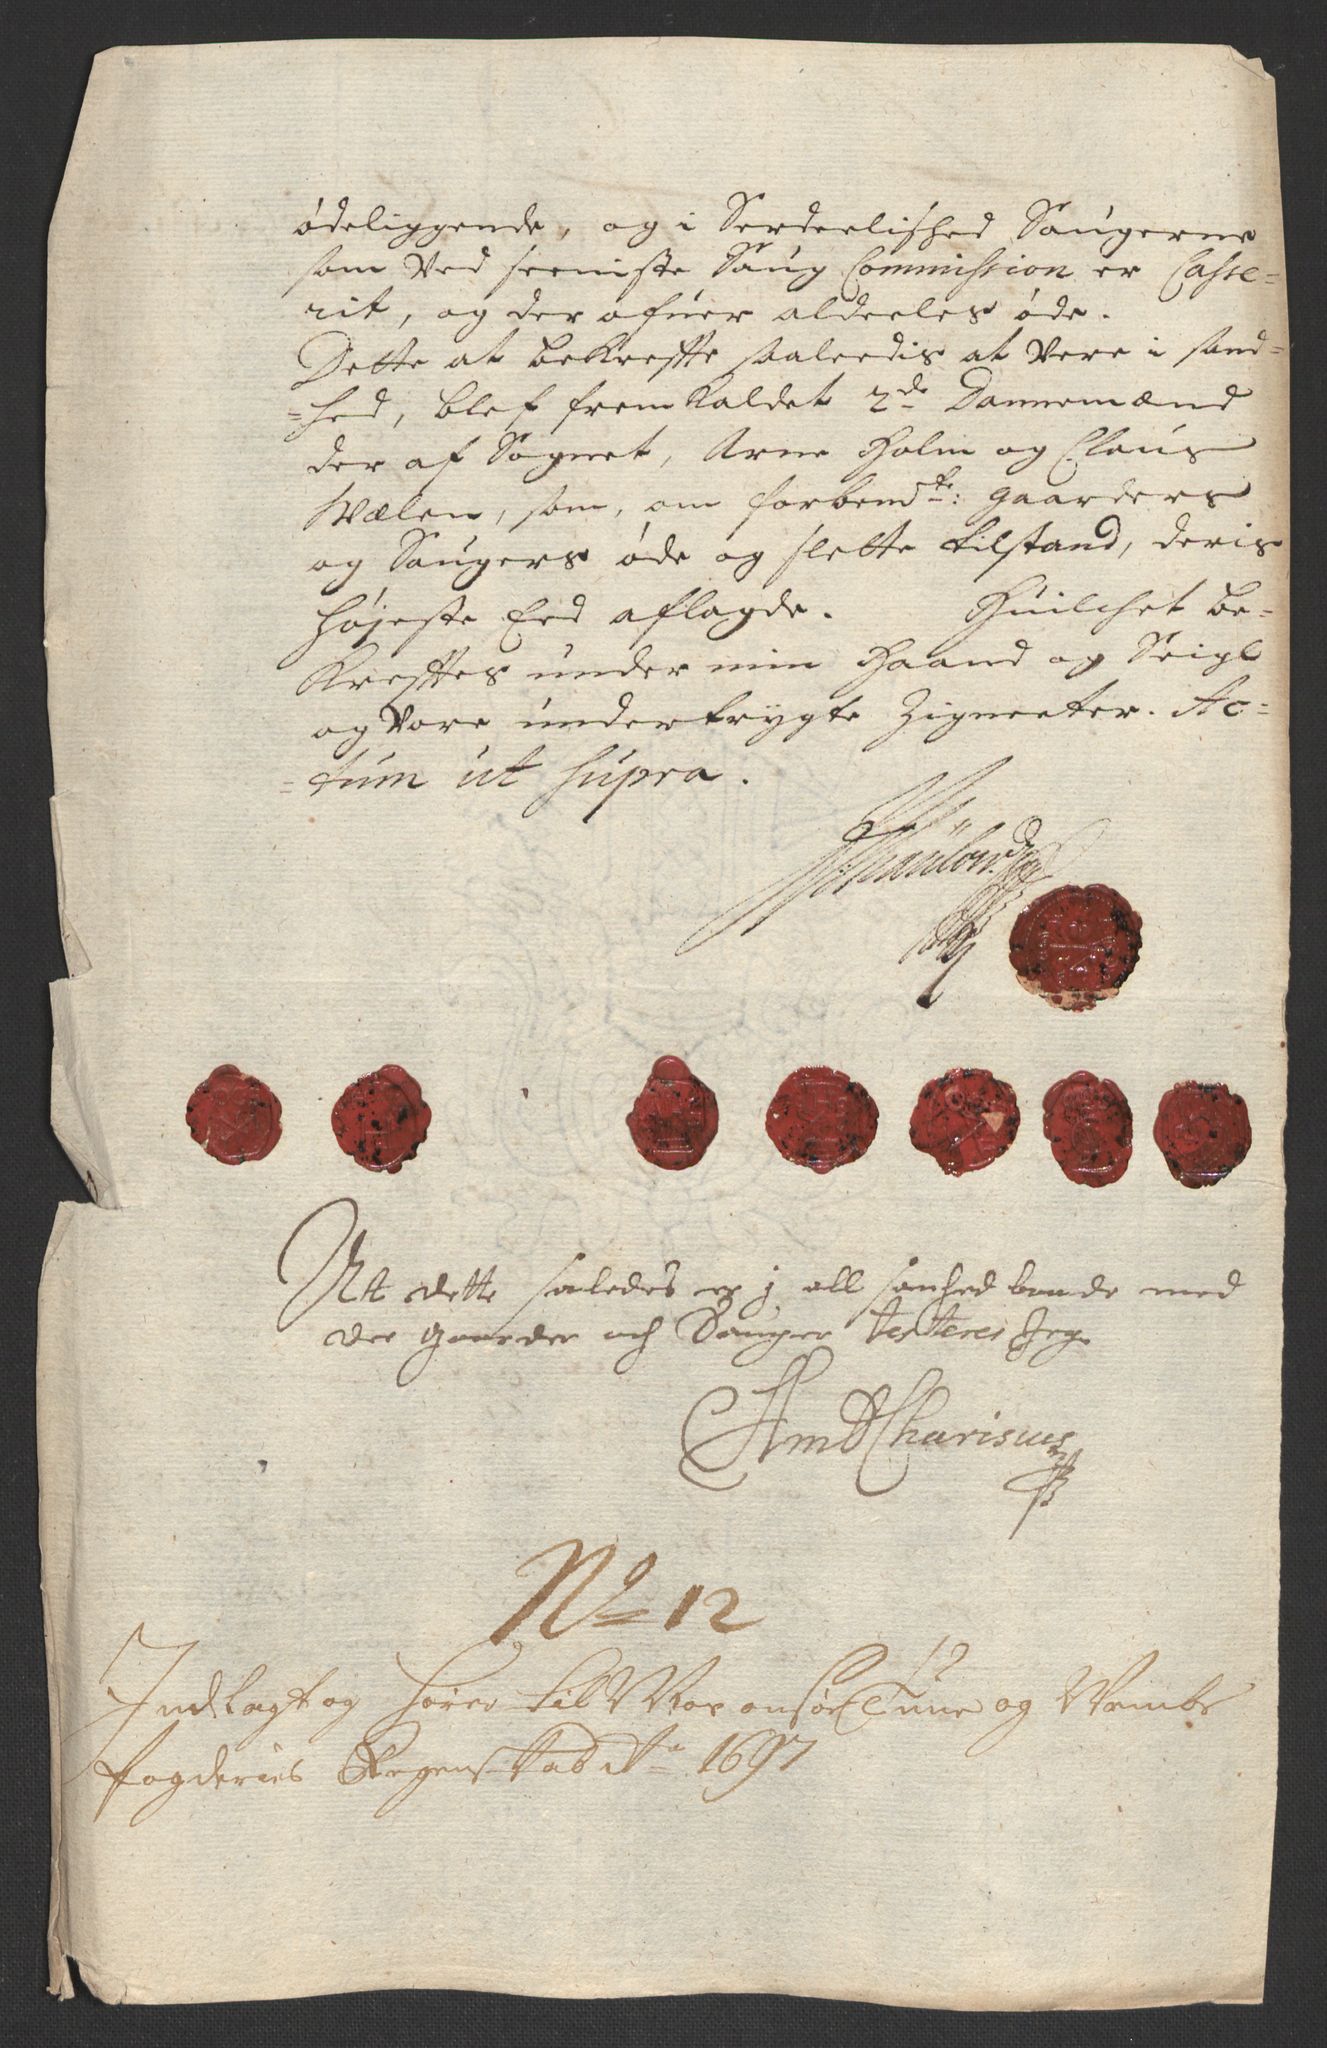 ödeliggende, og i Serdeelished Saugerne
som Ved seeniste Saug Commission er Casse=
rit, og der ofuer aldeeles öde.
Dette at bekreffte saaleedis at Vere i sand=
=hed, blef fremkaldet 2de Dannemænd
der af Sognet, Arne Holm og Claus
Wælen, som, om forbemte: gaarders
og Saugers öde og slette tilstand, deris
höjeste Eed aflagde. Huilchet be=
Krefftes under min Haand og Seigl
og Vore undertrygte Zigneeter. Ac=
=tum ut supra.
At dette saledes er j all sanhed baade med
der gaarder och Sauger testerer Jeg
Am Charisius
No 12
12
Indlagt og hörer til Mos onsöe Tune og Wembe
fogderies Regenskab Ao 1697